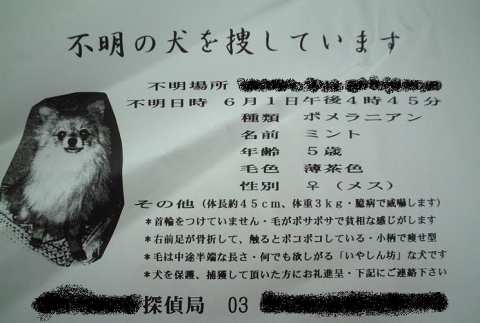 不明の犬を捜しています
不明場所
不明日時 6月1日午後4時45分
種類 ポメラニアン
名前 ミント
年齢 5歳
毛色 薄茶色
性別 ♀（メス）
その他（体長約45cm、体重3kg・臆病で威嚇します）
＊首輪をつけていません・毛がボサボサで貧相な感じがします
＊右前足が骨折して、触るとボコボコしている・小柄で痩せ型
＊毛は中途半端な長さ・何でも欲しがる「いやしん坊」な犬です
＊犬を保護、捕獲して頂いた方にお礼進呈・下記にご連絡下さい
探偵局 03